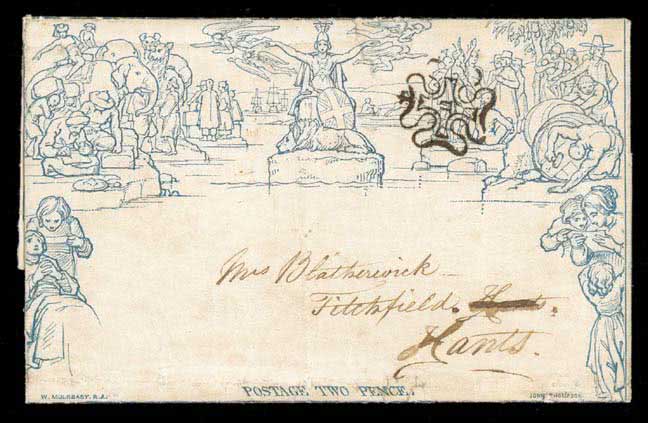 Mrs Blatherwick
Titchfield. Hants.
Hants.
POSTAGE TWO PENCE.
W. MULREADY. R.A.
JOHN THOMPSON